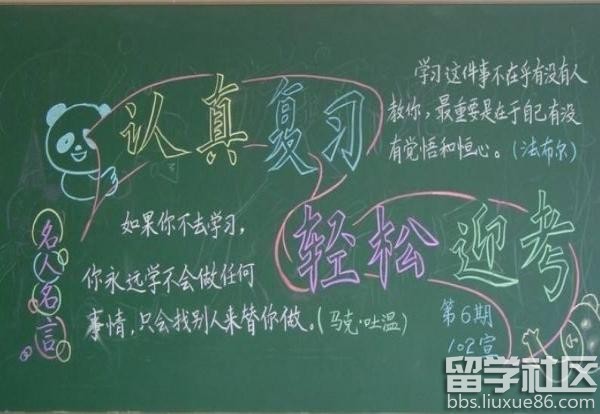 认真复习
学习这件事不在乎有没有人
教你，最重要是在于自己有没
有觉悟和恒心。（法布尔）
轻松迎考
名人名言
如果你不去学习，
你永远学不会做任何
事情，只会找别人来替你做。（马克·吐温）
第6期
102宣
留学社区
bbs.liuxue86.com